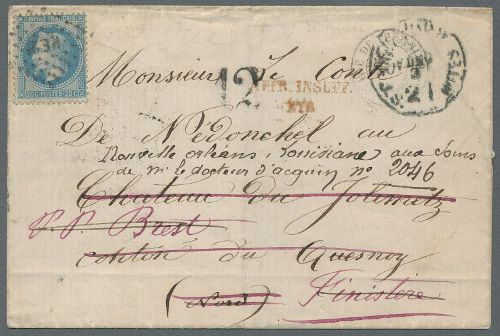 EMPIRE FRANÇAIS
20 C POSTES 20 C
12
AFFR. INSUFF.
Monsieur le Comte
De Nédonchel au
Nouvelle orléans, Louisiane, aux soins
de mr le docteur d'acquin no 2046
Chateau du Jolimetz
P.P. Brest
canton du Quesnoy
(Nord) Finistère